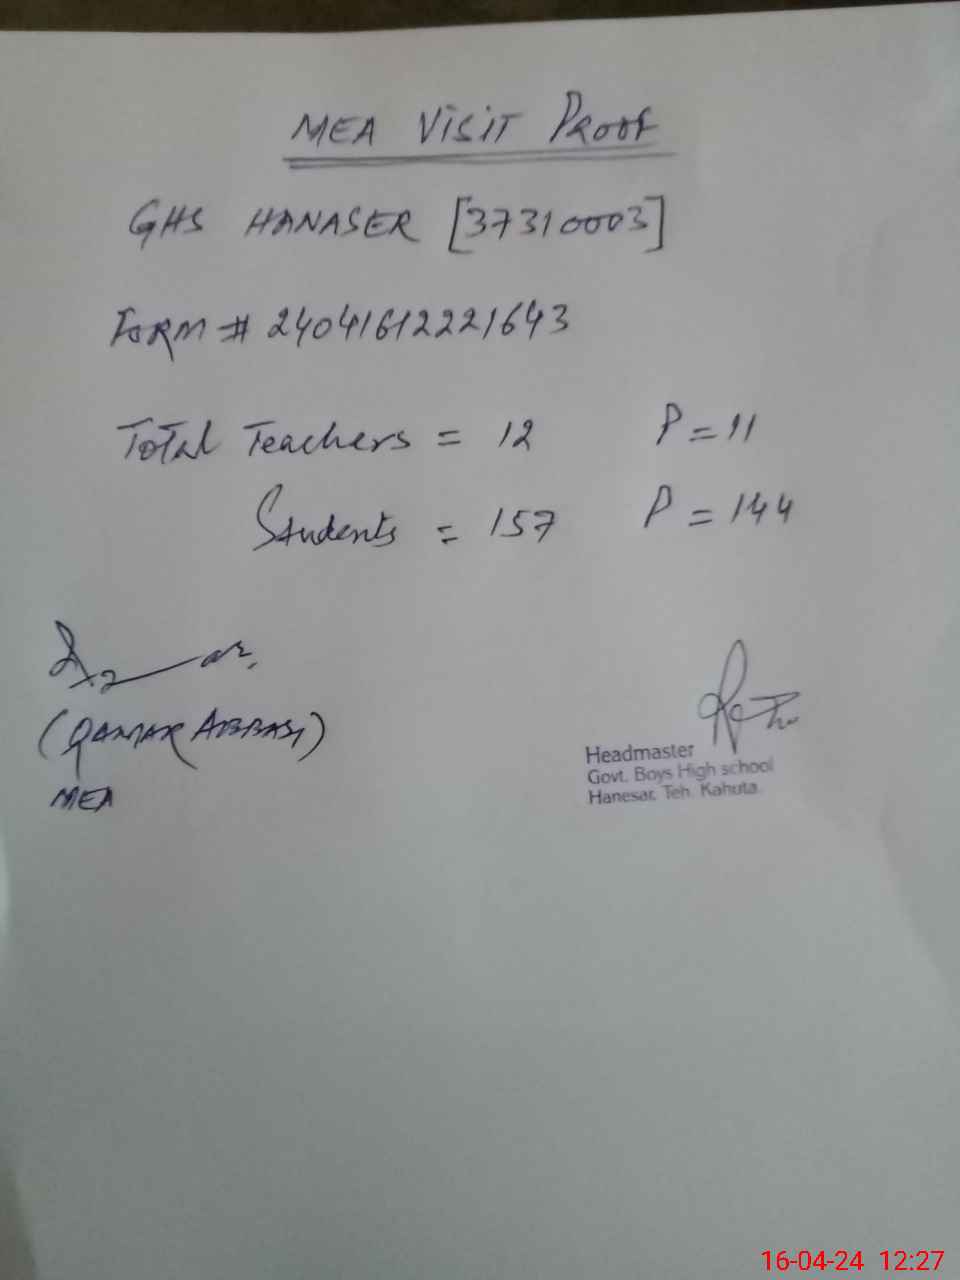 MEA Visit Proof
GHS HANASER [37310003]
Form # 24041612221643
Total Teachers = 12 P = 11
Students = 157 P = 144
(QAMAR ABBASI)
MEA
Headmaster
Govt. Boys High school
Hanesar, Teh. Kahuta.
16-04-24 12:27